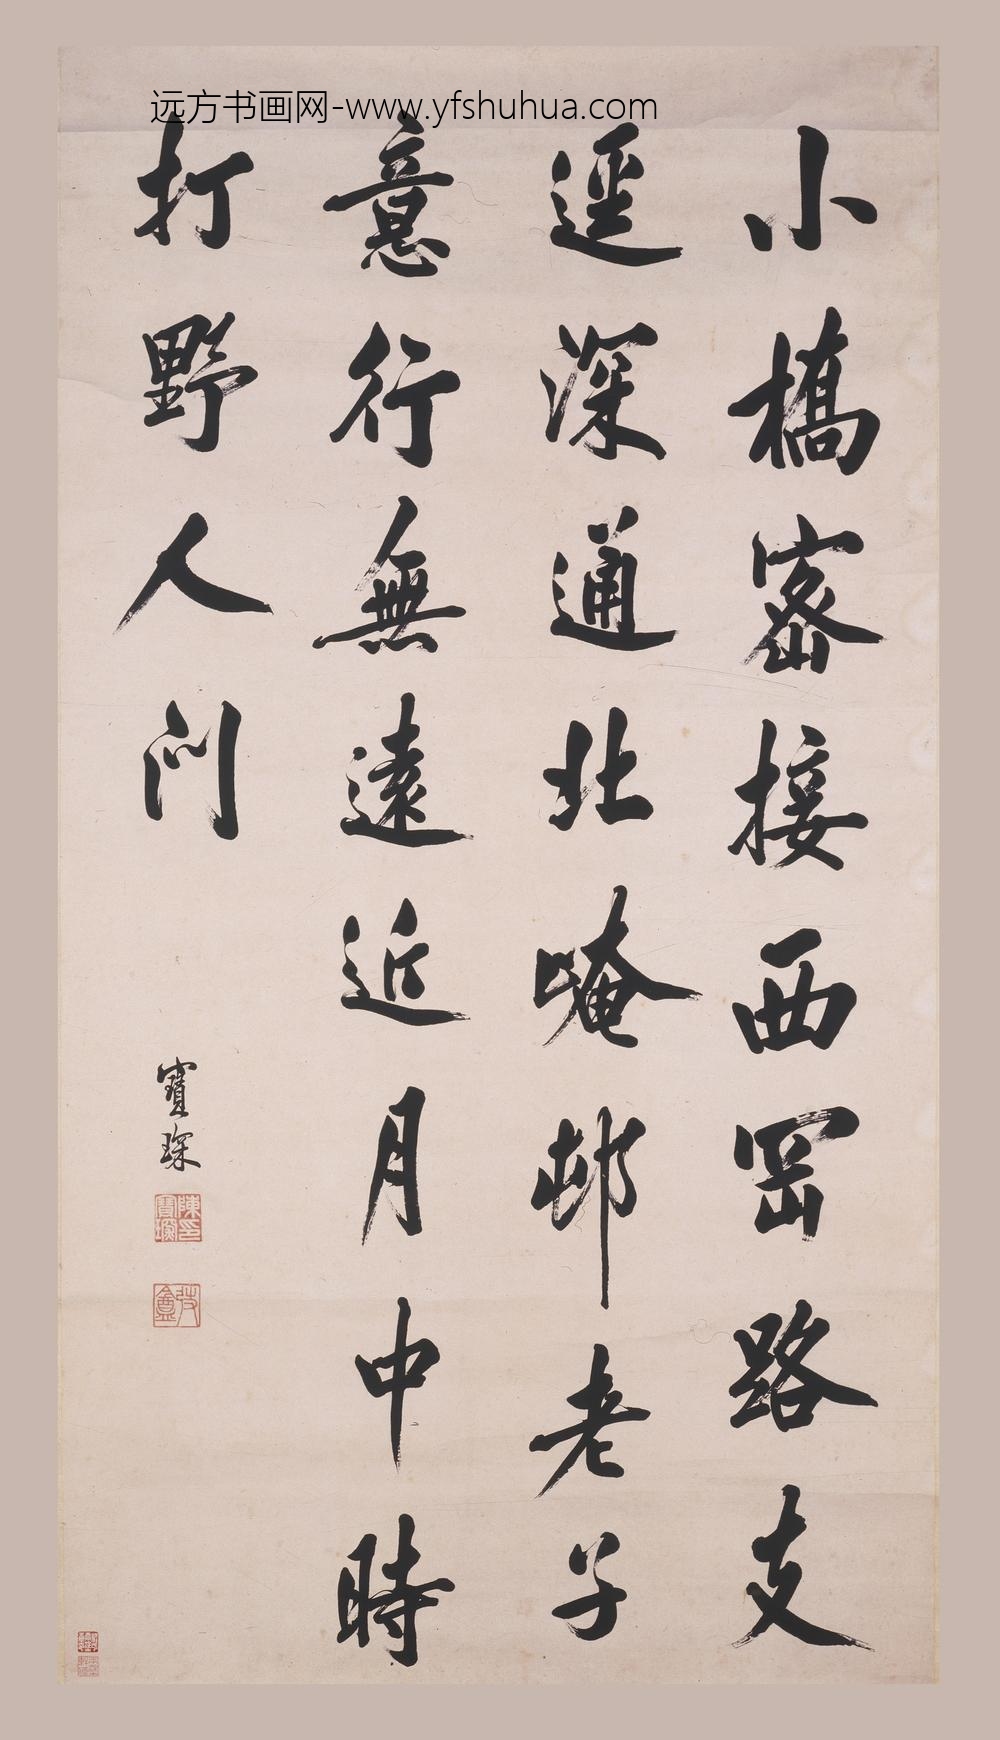 远方书画网-www.yfshuhua.com
小橋密接西岡路支
逕深通北崦邨老子
意行無遠近月中時
打野人門
寶琛
陳寶琛印
弢盦